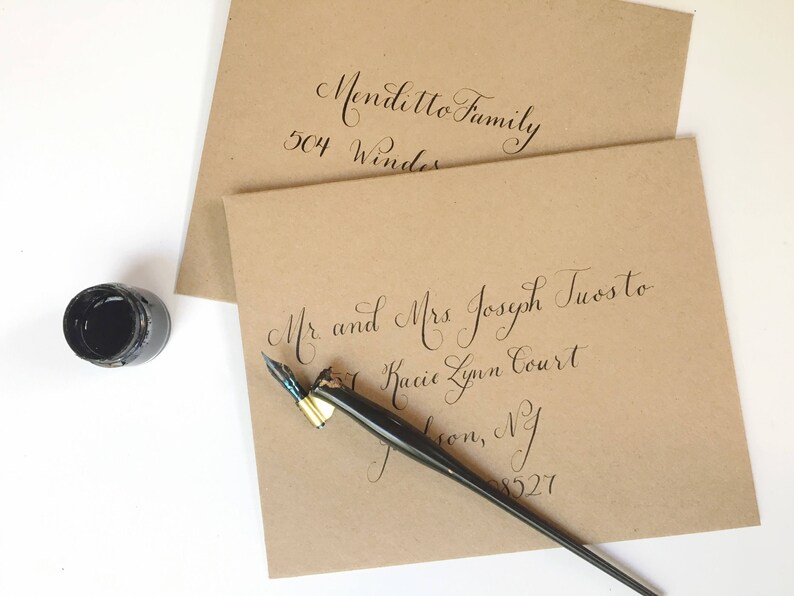 Menditto Family
504 Winder
Mr. and Mrs. Joseph Tuosto
57 Kacie Lynn Court
Jackson, NJ
08527